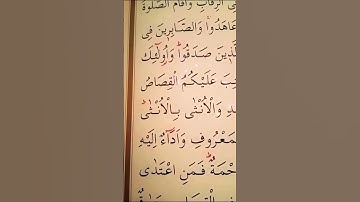 الرِّقَابِ وَاَقَامَ الصَّلٰوةَ
عَاهَدُواۚ وَالصَّابِر۪ينَ فِي
الَّذ۪ينَ صَدَقُواۜ وَاُو۬لٰٓئِكَ
عَلَيْكُمُ الْقِصَاصُ
وَالْاُنْثٰى بِالْاُنْثٰىۜ
وَاَدَٓاءٌ اِلَيْهِ
فَمَنِ اعْتَدٰى